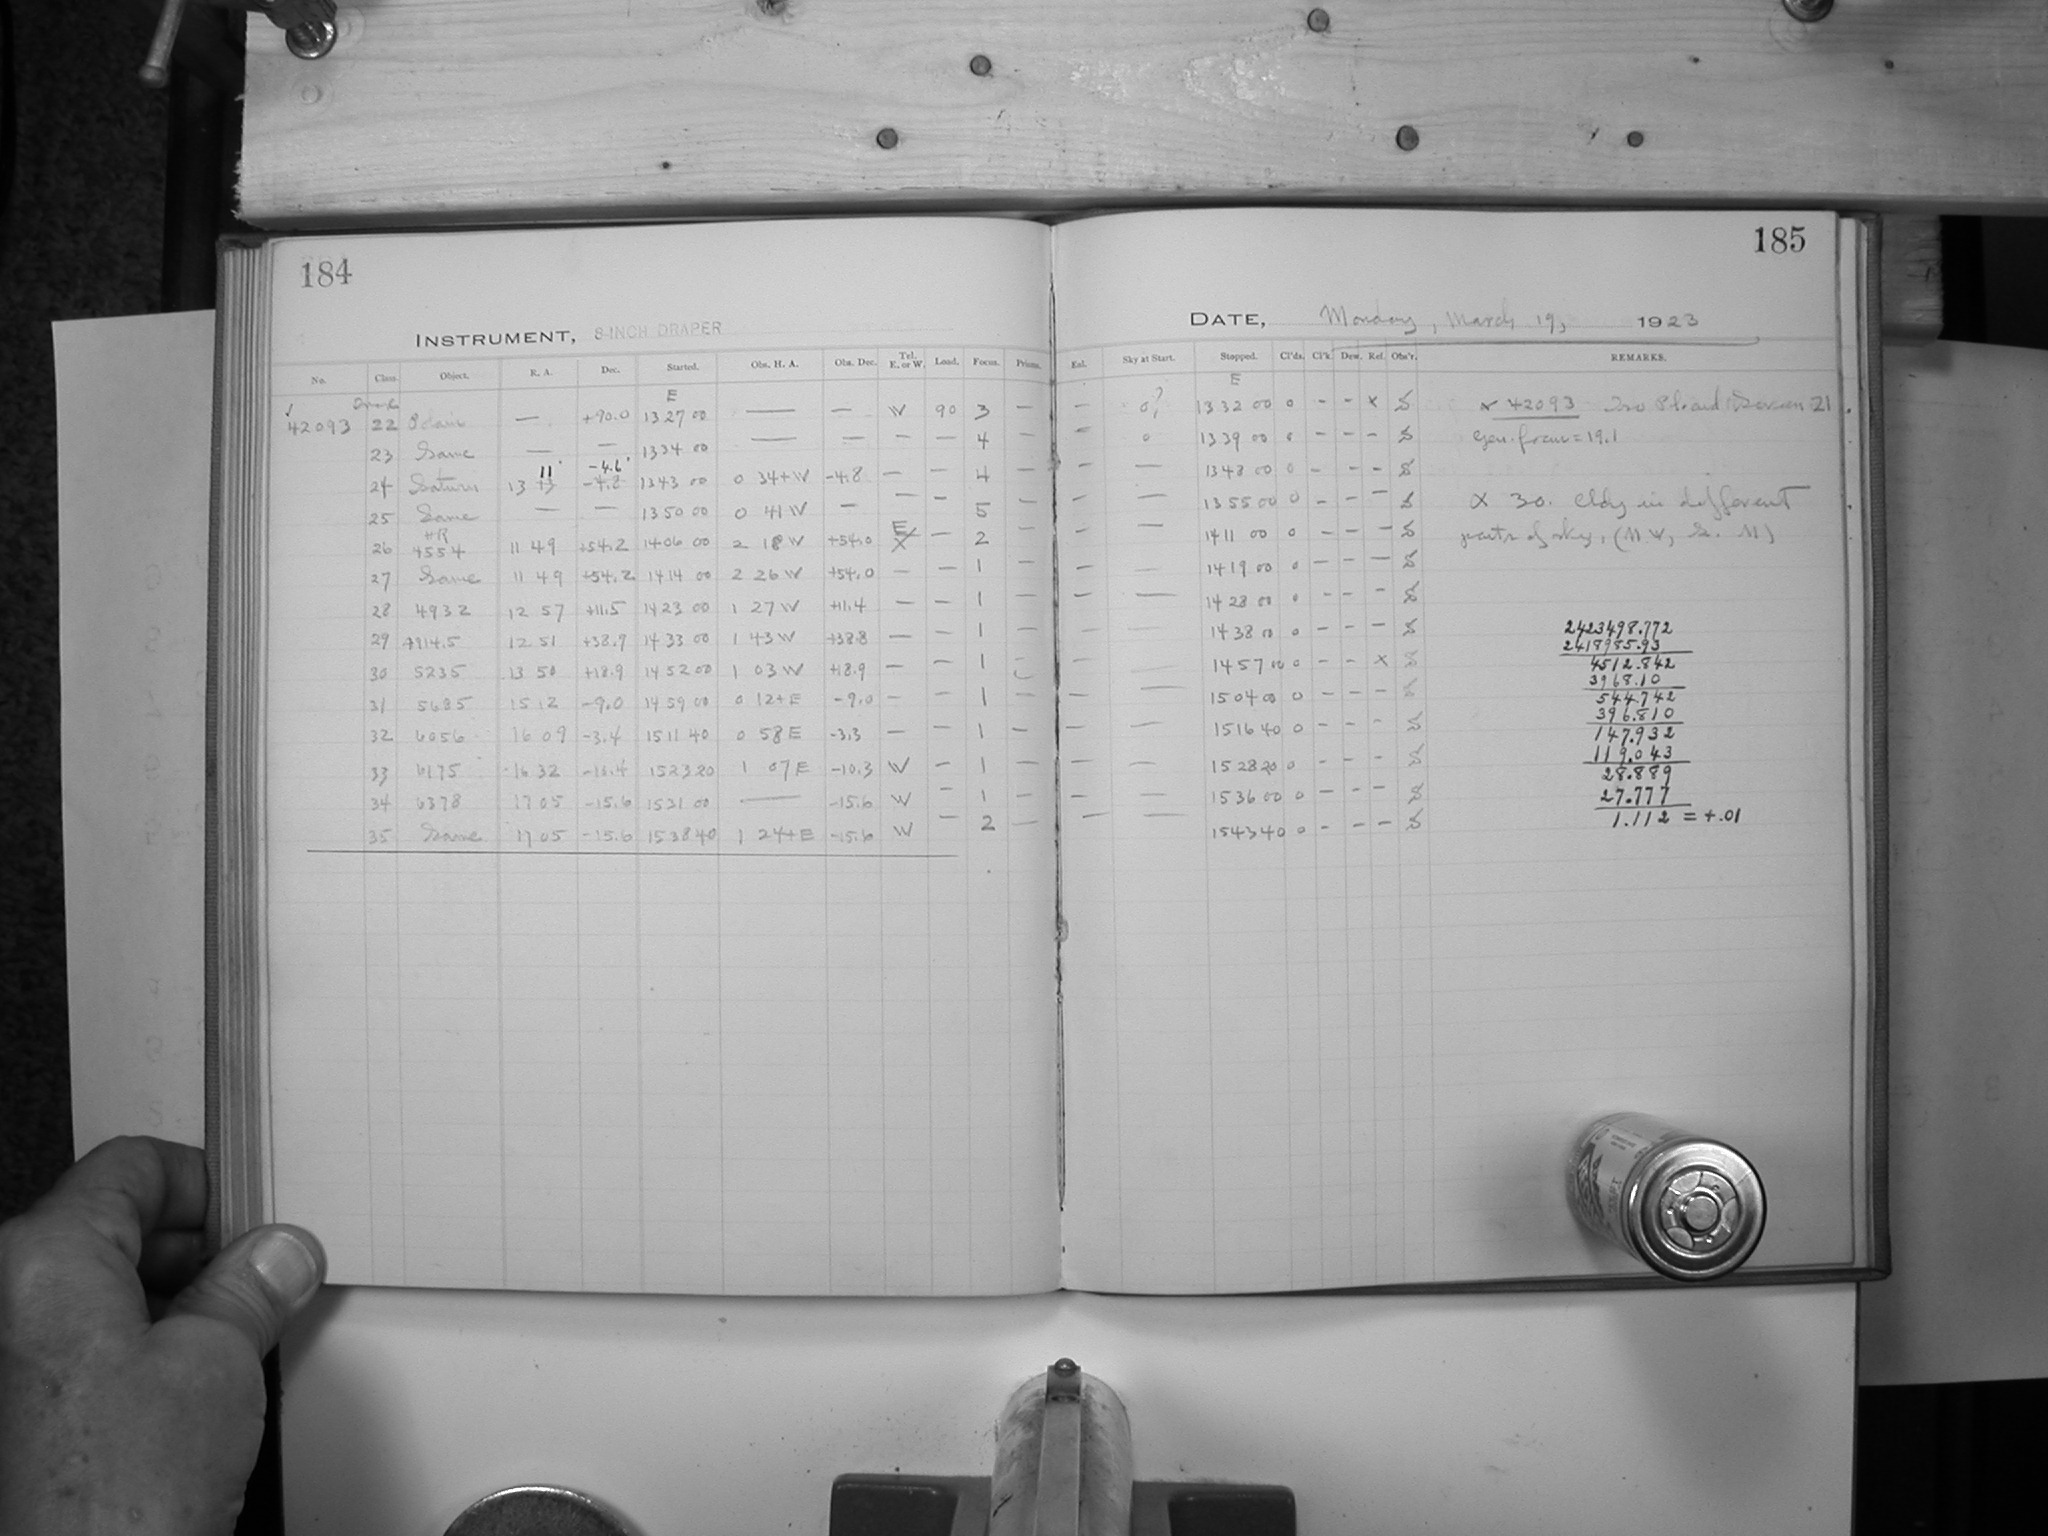 184
185
INSTRUMENT, 8-INCH DRAPER
DATE, Monday, March 19, 1923
No. Class Object. R. A. Dec. Started. Obs. H. A. Obs. Dec. Tel. E. or W. Load. Focus. Prisms. Enl. Sky at Start. Stopped. Cl'ds. Cl'k. Dew. Ref. Obs'r. REMARKS.
E E
42093 22 — +90.0 13 27 00 — — W 90 3 — — 0? 13 32 00 0 - - x S 42093
23 Same — — 13 34 00 — — — — 4 — 0 13 39 00 0 - - - S focus = 19.1
11 -4.6
24 Saturn 13 13 -4.8 13 43 00 0 34+W -4.8 — — 4 — — 13 48 00 0 - - - S
25 Same — — 13 50 00 0 41 W — — — 5 — — 13 55 00 0 - - - S X 30. Cldy in different
HR E
26 4554 11 49 +54.2 14 06 00 2 18 W +54.0 X — 2 — — — 14 11 00 0 - - - S parts of sky, (N W, S. N)
27 Same 11 49 +54.2 14 14 00 2 26 W +54.0 — — 1 — — — 14 19 00 0 - - - S
28 4932 12 57 +11.5 14 23 00 1 27 W +11.4 — — 1 — — — 14 28 00 0 - - - S
29 4914.5 12 51 +38.9 14 33 00 1 43 W +38.8 — — 1 — — — 14 38 00 0 - - - S
30 5235 13 50 +18.9 14 52 00 1 03 W +18.9 — — 1 — — — 14 57 00 0 - - x S
31 5685 15 12 -9.0 14 59 00 0 12+E -9.0 — — 1 — — — 15 04 00 0 - - - S
32 6056 16 09 -3.4 15 11 40 0 58 E -3.3 — — 1 — — — 15 16 40 0 - - - S
33 6175 16 32 -10.4 15 23 20 1 07 E -10.3 W — 1 — — — 15 28 20 0 - - - S
34 6378 17 05 -15.6 15 31 00 — -15.6 W — 1 — — — 15 36 00 0 - - - S
35 Same 17 05 -15.6 15 38 40 1 24+E -15.6 W — 2 — — — 15 43 40 0 - - - S
2423498.772
2418985.93
4512.842
3968.10
544.742
396.810
147.932
119.043
28.889
27.777
1.112 = +.01